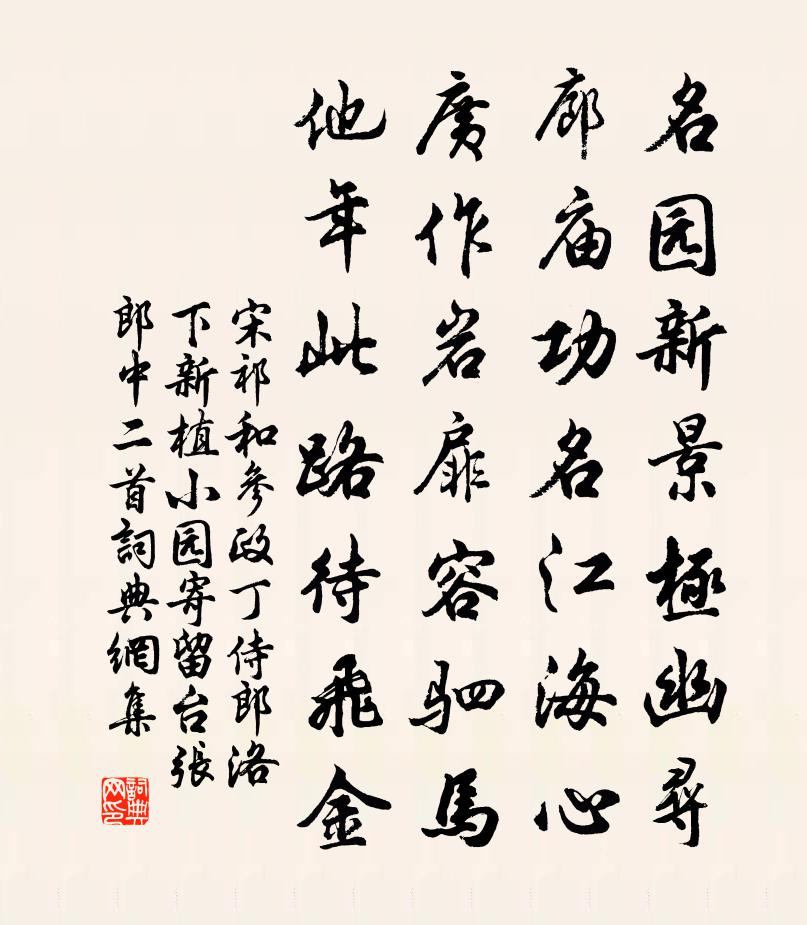 名园新景極幽尋
廊庙功名江海心
廣作岩扉容駟馬
他年此路待飛金
宋祁和參政丁侍郎洛
下新植小园寄留台張
郎中二首詞典網集
詞典
网印